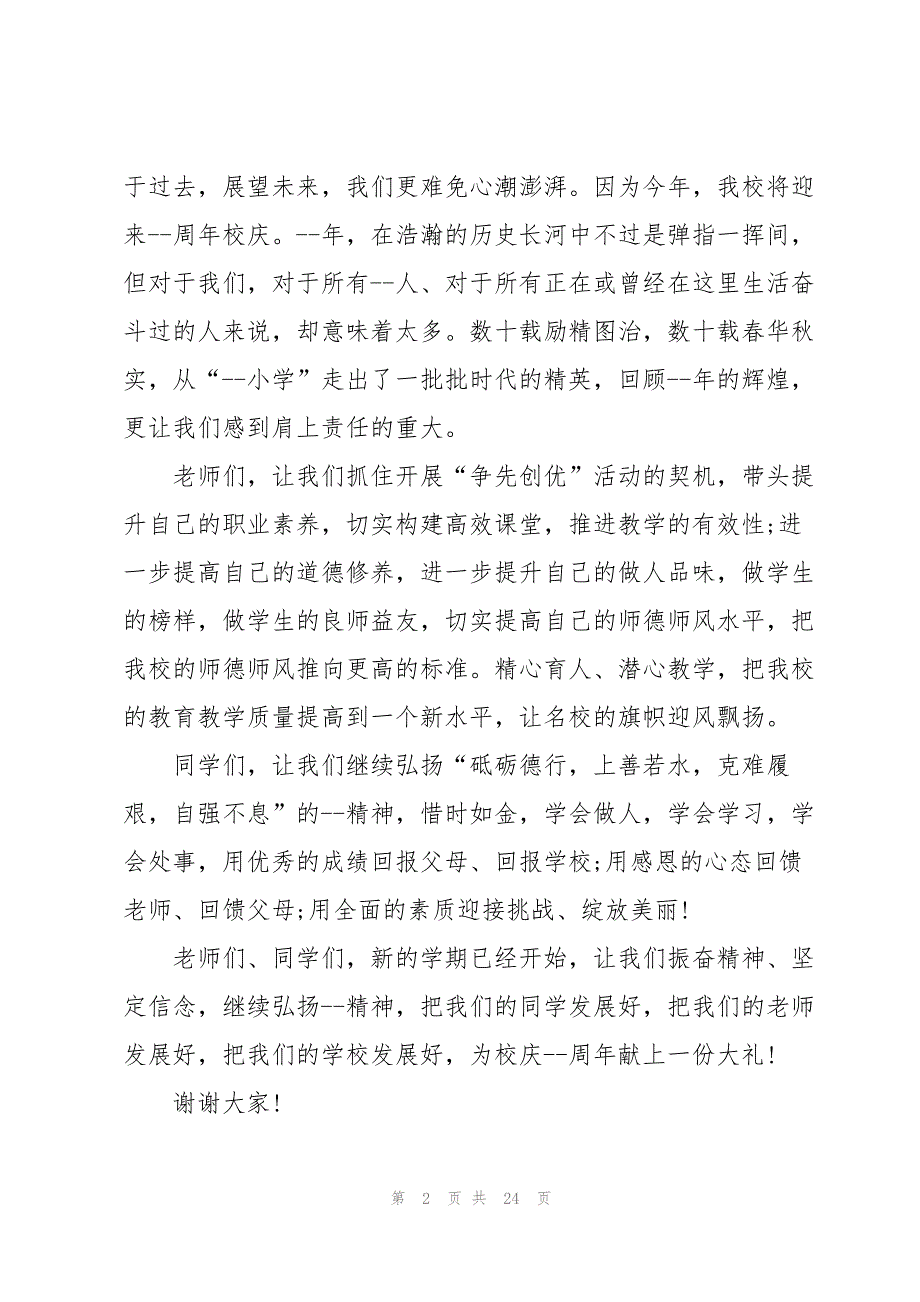 于过去，展望未来，我们更难免心潮澎湃。因为今年，我校将迎
来--周年校庆。--年，在浩瀚的历史长河中不过是弹指一挥间，
但对于我们，对于所有--人、对于所有正在或曾经在这里生活奋
斗过的人来说，却意味着太多。数十载励精图治，数十载春华秋
实，从“--小学”走出了一批批时代的精英，回顾--年的辉煌，
更让我们感到肩上责任的重大。
老师们，让我们抓住开展“争先创优”活动的契机，带头提
升自己的职业素养，切实构建高效课堂，推进教学的有效性;进
一步提高自己的道德修养，进一步提升自己的做人品味，做学生
的榜样，做学生的良师益友，切实提高自己的师德师风水平，把
我校的师德师风推向更高的标准。精心育人、潜心教学，把我校
的教育教学质量提高到一个新水平，让名校的旗帜迎风飘扬。
同学们，让我们继续弘扬“砥砺德行，上善若水，克难履
艰，自强不息”的--精神，惜时如金，学会做人，学会学习，学
会处事，用优秀的成绩回报父母、回报学校;用感恩的心态回馈
老师、回馈父母;用全面的素质迎接挑战、绽放美丽!
老师们、同学们，新的学期已经开始，让我们振奋精神、坚
定信念，继续弘扬--精神，把我们的同学发展好，把我们的老师
发展好，把我们的学校发展好，为校庆--周年献上一份大礼!
谢谢大家!
第 2 页 共 24 页